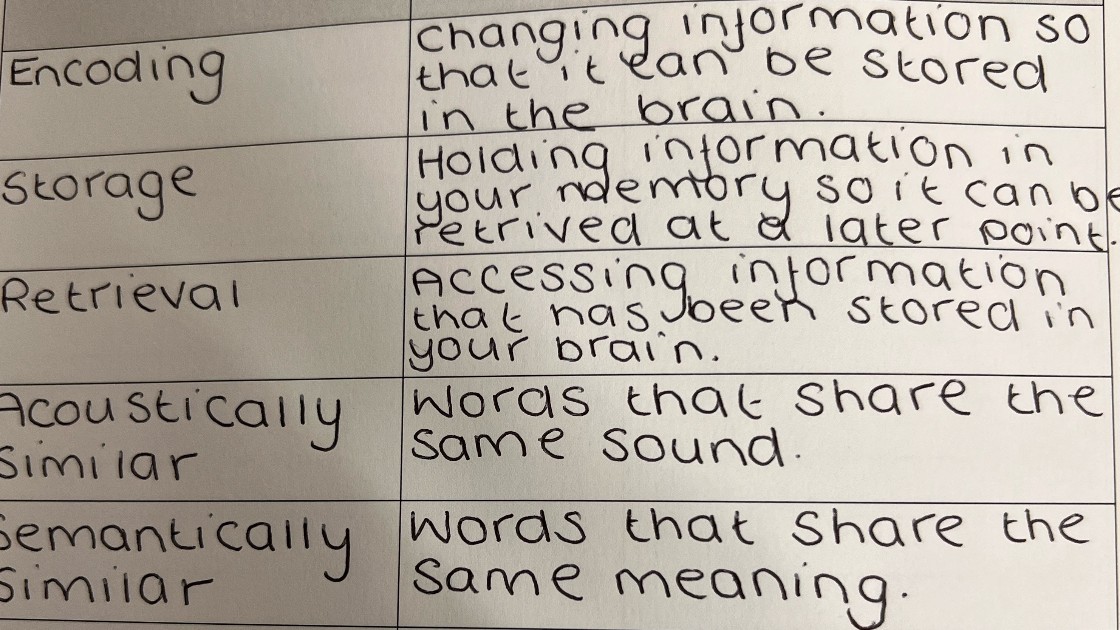 Encoding
changing information so
that it can be stored
in the brain.
Storage
Holding information in
your memory so it can be
retrived at a later point.
Retrieval
Accessing information
that has been stored in
your brain.
Acoustically
Similar
Words that share the
same sound.
Semantically
Similar
Words that share the
same meaning.